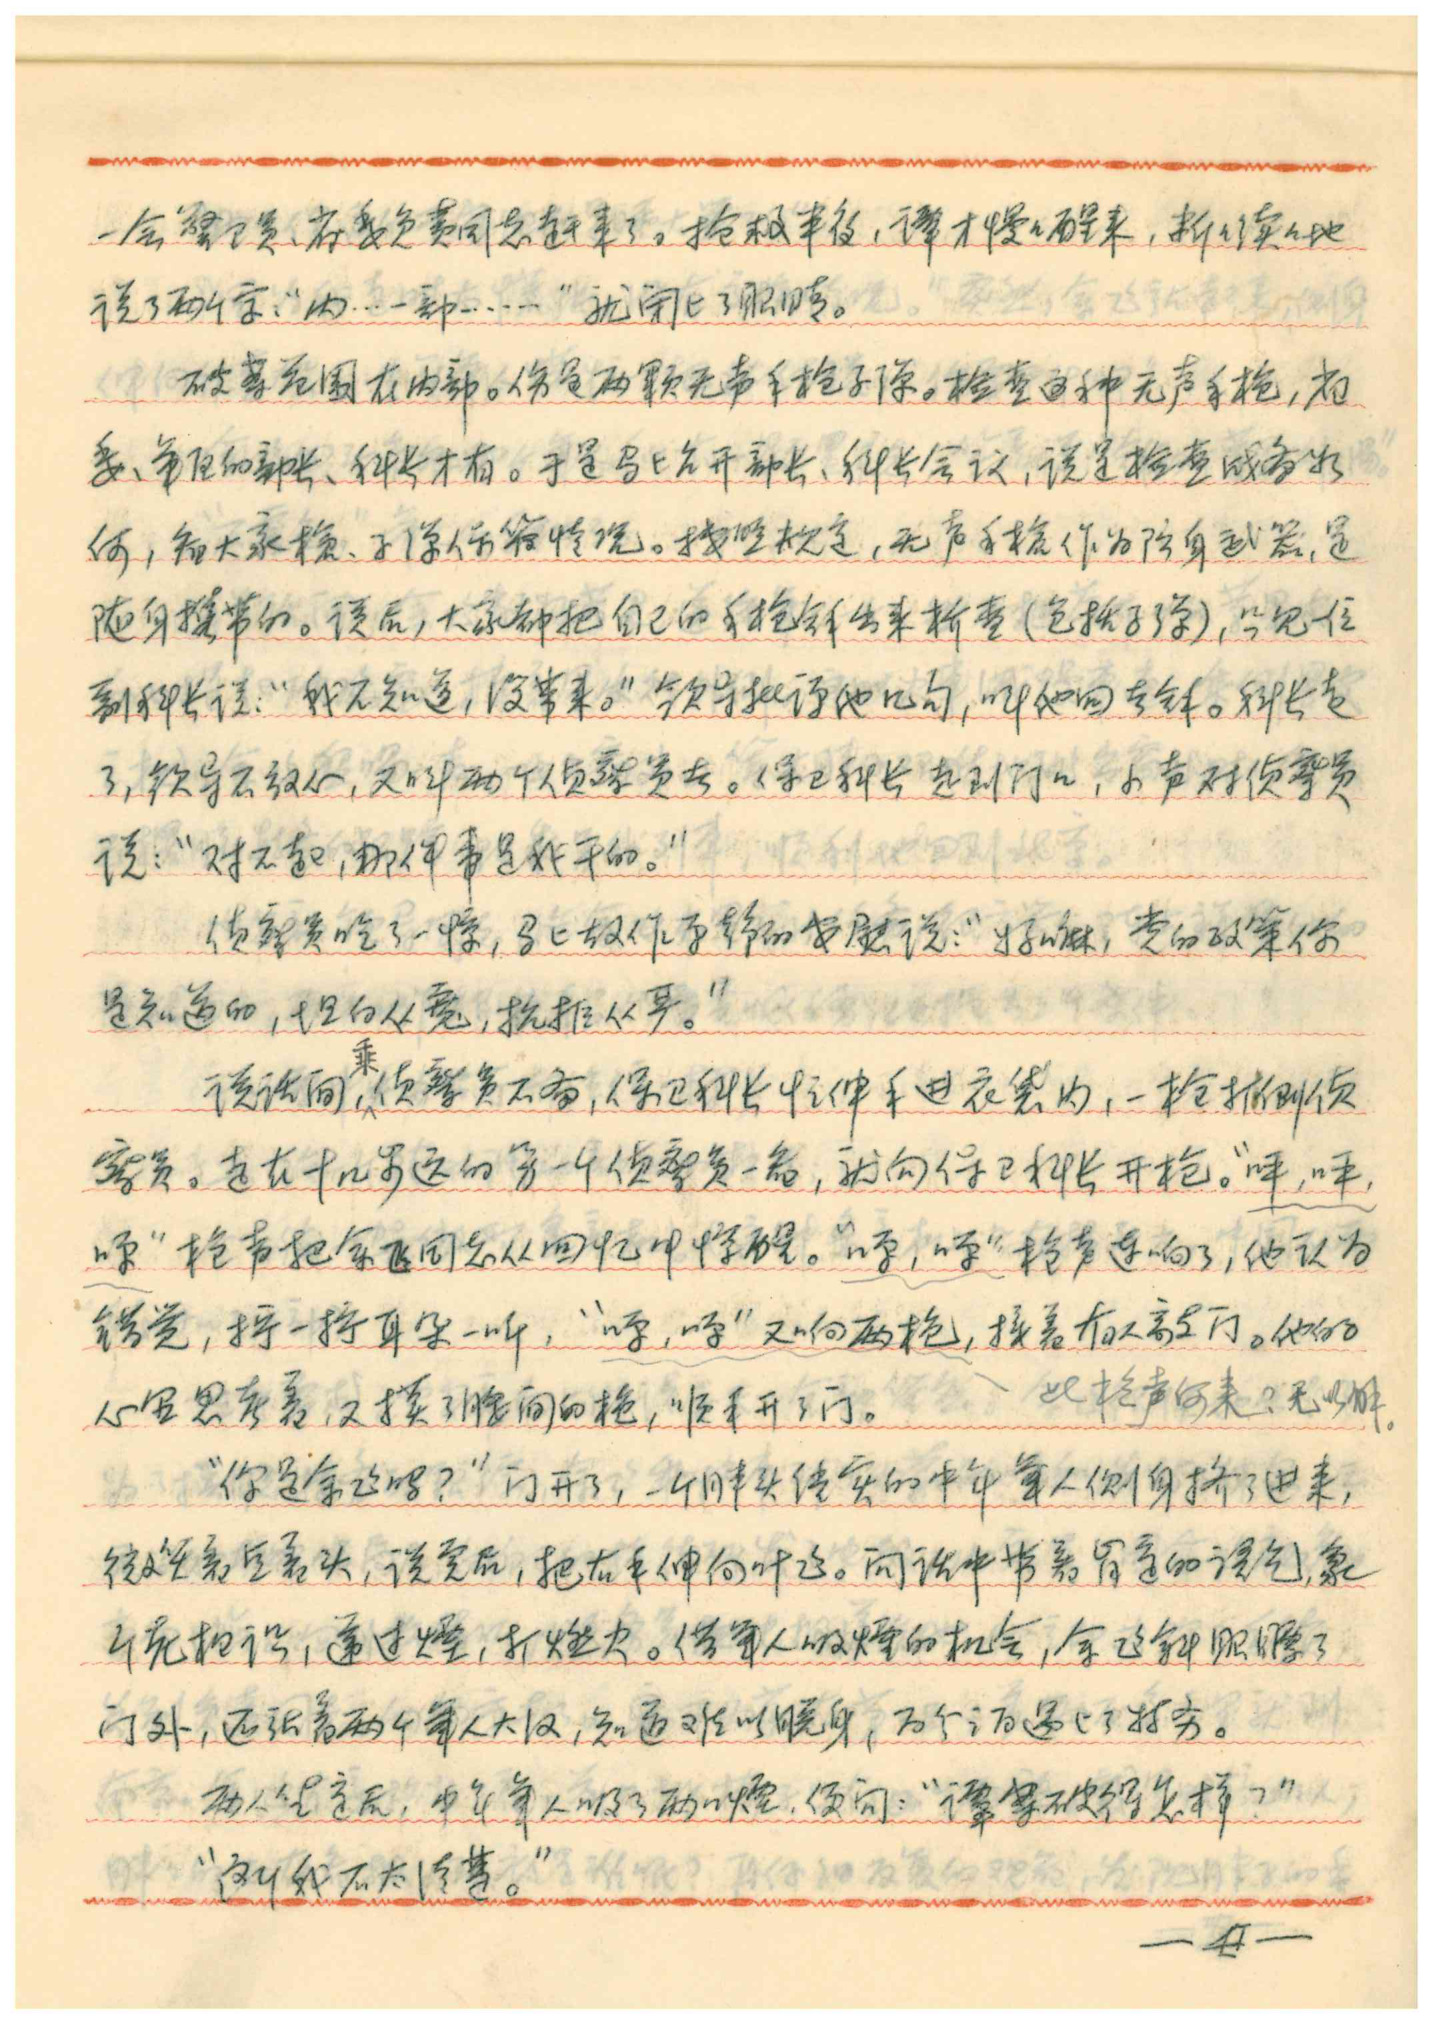 一会警卫员、省委负责同志赶来了。抢救半夜，谭才慢慢醒来，断断续续地
说了两个字：“内……部……”就闭上了眼睛。
破案范围在内部。伤是两颗无声手枪子弹。检查这种无声手枪，省
委、军区的部长、科长才有。于是马上召开部长、科长会议，说是检查战备如
何，看大家枪、子弹保管情况。按照规定，无声手枪作为防身武器，是
随身携带的。说后，大家都把自己的手枪拿出来检查（包括子弹），只见一位
副科长说：“我不知道，没带来。”领导批评他几句，叫他回去拿。科长走
了，领导不放心，又叫两个侦察员去。保卫科长走到门口，小声对侦察员
说：“对不起，那件事是我干的。”
侦察员吃了一惊，马上故作平静的安慰说：“好嘛，党的政策你
是知道的，坦白从宽，抗拒从严。”
说话间，乘侦察员不备，保卫科长忙伸手进衣袋内，一枪打倒侦
察员。走在十几步远的另一个侦察员一看，就向保卫科长开枪。“呯，呯，
呯”枪声把余飞同志从回忆中惊醒。“呯，呯”枪声连响了，他认为
错觉，拧一拧耳朵一听，“呯，呯”又响两枪，接着有人敲门。他的
心里思考着，又摸了腰间的枪，顺手开了门。
此枪声何来？无明解。
“你是余飞吗？”门开了，一个胖头结实的中年军人侧身挤了进来，
微笑着点着头，说完后，把右手伸向叶飞。问话中带着肯定的语气，象
早就相识，递过烟，打燃火。借军人吸烟的机会，余飞斜眼瞟了
门外，还站着两个军人大汉，知道难以脱身，
两人坐定后，中年军人吸了两口烟，便问：“谭案破得怎样？”
“这个我不太清楚。”